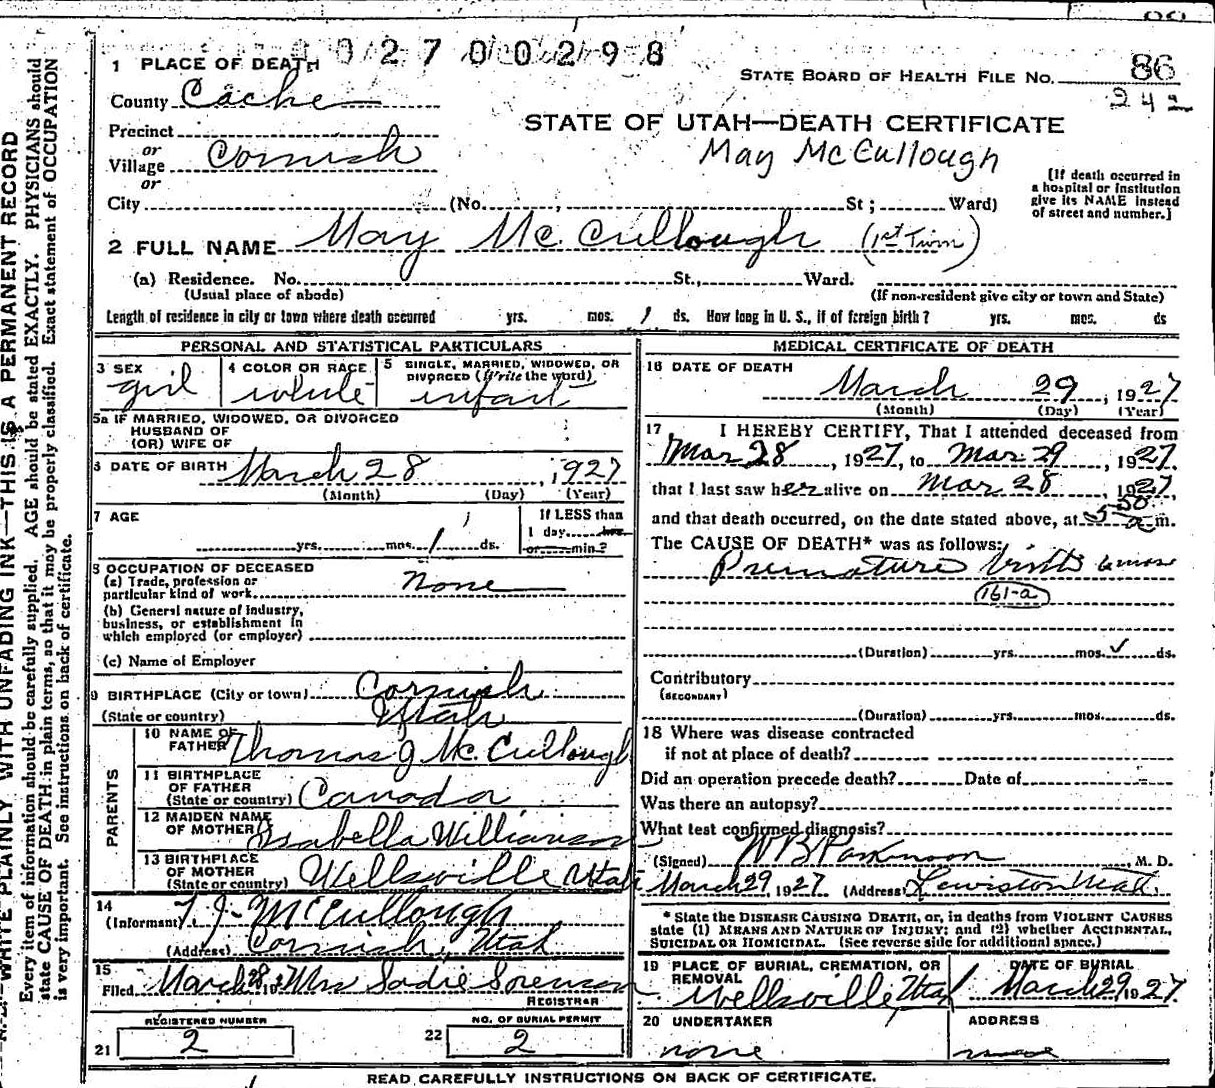 02700298
STATE BOARD OF HEALTH FILE NO. 86
242
1 PLACE OF DEATH
County Cache
STATE OF UTAH—DEATH CERTIFICATE
Precinct
or
Village Cornish
May McCullough
or
City (No. , St; Ward)
[If death occurred in
a hospital or institution
give its NAME instead
of street and number.]
2 FULL NAME May Mc Cullough (1st Twin)
(a) Residence. No. St., Ward.
(Usual place of abode)
(If non-resident give city or town and State)
Length of residence in city or town where death occurred yrs. mos. 1 ds. How long in U. S., if of foreign birth? yrs. mos. ds
PERSONAL AND STATISTICAL PARTICULARS
3 SEX girl
4 COLOR OR RACE white
5 SINGLE, MARRIED, WIDOWED, OR
DIVORCED (Write the word)
infant
5a IF MARRIED, WIDOWED, OR DIVORCED
HUSBAND OF
(OR) WIFE OF
6 DATE OF BIRTH March 28, 1927
(Month) (Day) (Year)
7 AGE
yrs. mos. 1 ds.
If LESS than
1 day hrs.
or min.?
8 OCCUPATION OF DECEASED
(a) Trade, profession or
particular kind of work none
(b) General nature of industry,
business, or establishment in
which employed (or employer)
(c) Name of Employer
9 BIRTHPLACE (City or town) Cornish
(State or country) Utah
PARENTS
10 NAME OF
FATHER Thomas J Mc. Cullough
11 BIRTHPLACE
OF FATHER
(State or country) Canada
12 MAIDEN NAME
OF MOTHER Isabella Williamson
13 BIRTHPLACE
OF MOTHER
(State or country) Wellsville Utah
14
(Informant) T J McCullough
(Address) Cornish, Utah
15
Filed March 28 Mrs Sadie Sorenson
REGISTRAR
REGISTERED NUMBER
21 2
NO. OF BURIAL PERMIT
22 2
MEDICAL CERTIFICATE OF DEATH
16 DATE OF DEATH
March 29, 1927
(Month) (Day) (Year)
17 I HEREBY CERTIFY, That I attended deceased from
Mar 28, 1927, to Mar 29, 1927.
that I last saw her alive on Mar 28, 1927,
and that death occurred, on the date stated above, at 5 50 a m.
The CAUSE OF DEATH* was as follows:
Premature birth 6 mos
161-a
(Duration) yrs. mos. ds.
Contributory
(SECONDARY)
(Duration) yrs. mos. ds.
18 Where was disease contracted
if not at place of death?
Did an operation precede death? Date of
Was there an autopsy?
What test confirmed diagnosis?
(Signed) W B Parkinson, M. D.
March 29, 1927 (Address) Lewiston Utah.
* State the DISEASE CAUSING DEATH, or, in deaths from VIOLENT CAUSES
state (1) MEANS AND NATURE OF INJURY; and (2) whether ACCIDENTAL,
SUICIDAL OR HOMICIDAL. (See reverse side for additional space.)
19 PLACE OF BURIAL, CREMATION, OR
REMOVAL
Wellsville, Utah
DATE OF BURIAL
March 29 1927
20 UNDERTAKER
none
ADDRESS
READ CAREFULLY INSTRUCTIONS ON BACK OF CERTIFICATE.
WRITE PLAINLY WITH UNFADING INK—THIS IS A PERMANENT RECORD
Every item of information should be carefully supplied. AGE should be stated EXACTLY. PHYSICIANS should
state CAUSE OF DEATH in plain terms, so that it may be properly classified. Exact statement of OCCUPATION
is very important. See instructions on back of certificate.